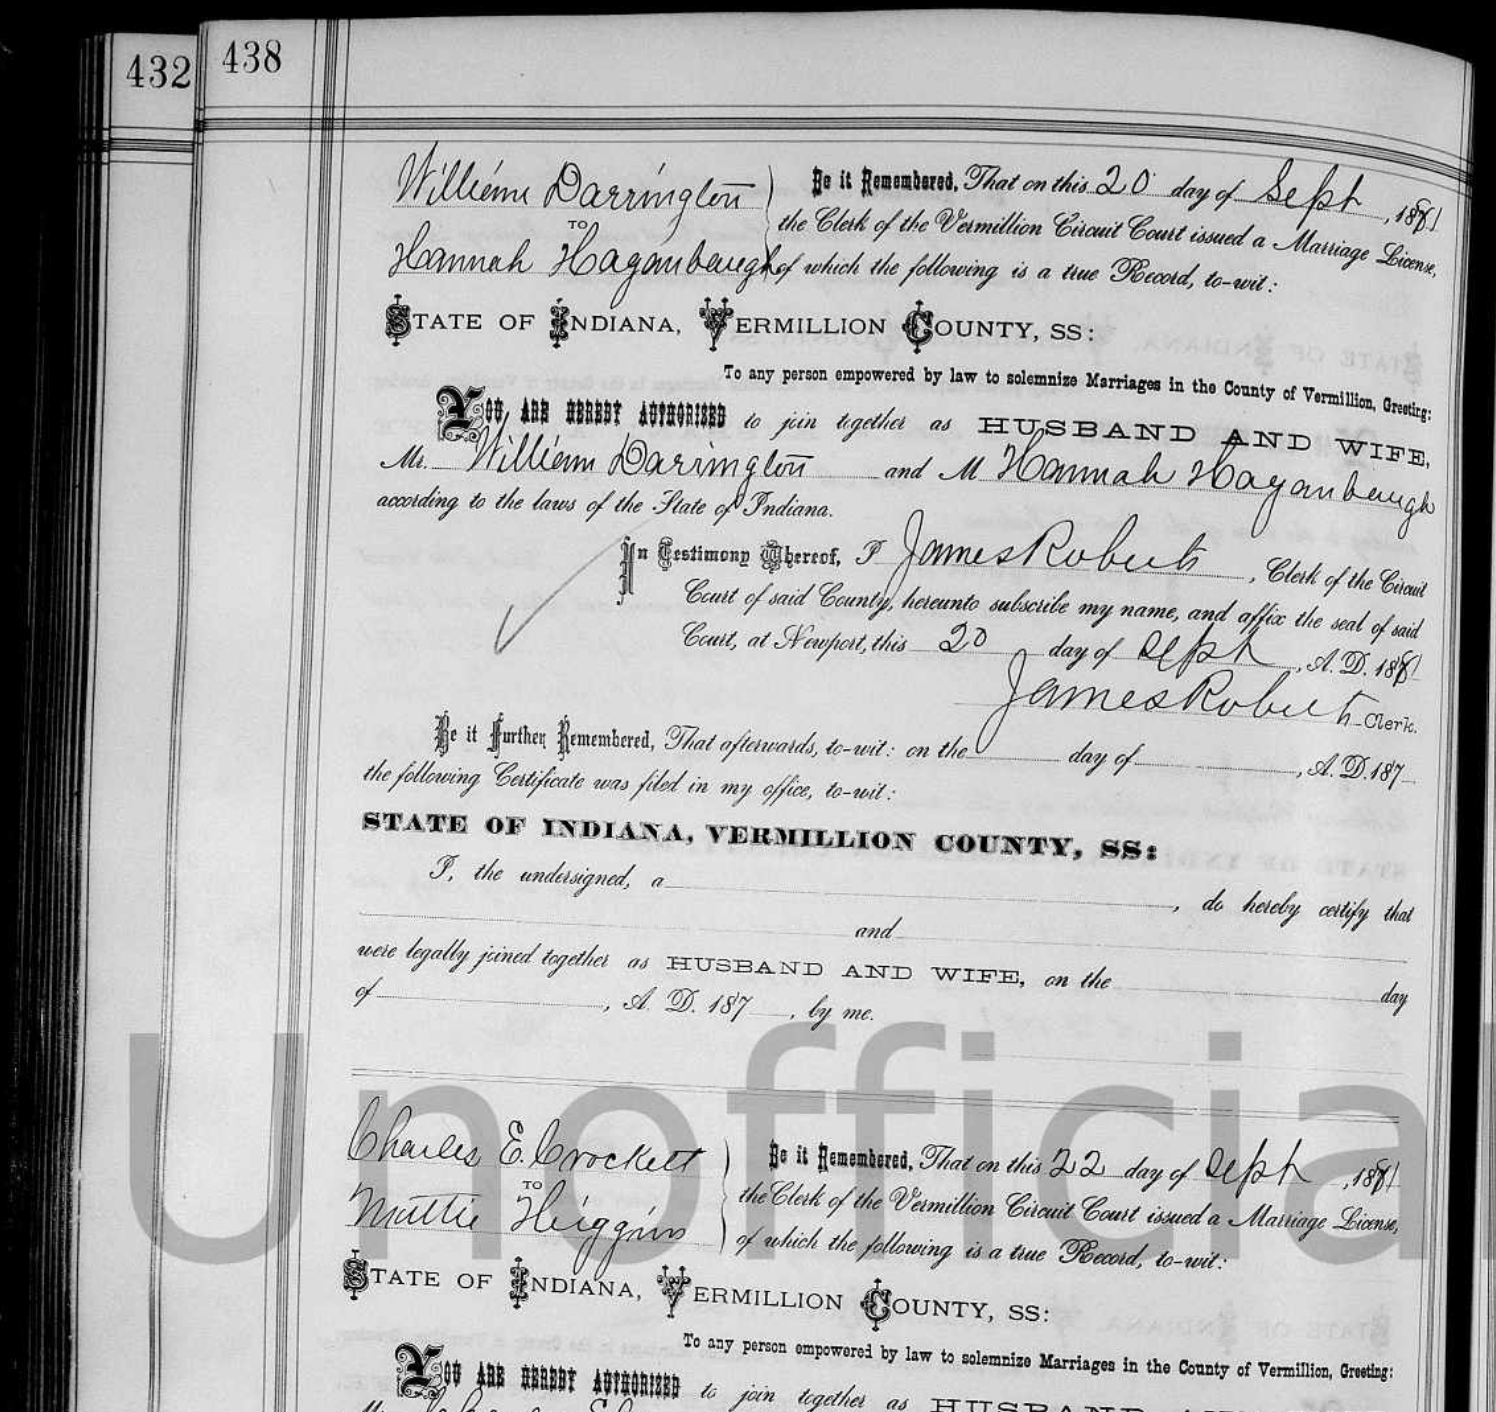 432
438
William Darrington
TO
Hannah Haganbaugh
Be it Remembered, That on this 20 day of Sept, 1881
the Clerk of the Vermillion Circuit Court issued a Marriage License,
of which the following is a true Record, to-wit:
STATE OF INDIANA, VERMILLION COUNTY, SS:
To any person empowered by law to solemnize Marriages in the County of Vermillion, Greeting:
YOU ARE HEREBY AUTHORIZED to join together as HUSBAND AND WIFE,
Mr. William Darrington and M Hannah Haganbaugh
according to the laws of the State of Indiana.
In Testimony Whereof, I James Roberts, Clerk of the Circuit
Court of said County, hereunto subscribe my name, and affix the seal of said
Court, at Newport, this 20 day of Sept, A. D. 1881
James Roberts Clerk.
Be it Further Remembered, That afterwards, to-wit: on the day of , A. D. 187
the following Certificate was filed in my office, to-wit:
STATE OF INDIANA, VERMILLION COUNTY, SS:
I, the undersigned, a , do hereby certify that
and
were legally joined together as HUSBAND AND WIFE, on the day
of , A. D. 187 , by me.
Unofficial
Charles E. Crockett
TO
Mattie Higgins
Be it Remembered, That on this 22 day of Sept, 1881
the Clerk of the Vermillion Circuit Court issued a Marriage License,
of which the following is a true Record, to-wit:
STATE OF INDIANA, VERMILLION COUNTY, SS:
To any person empowered by law to solemnize Marriages in the County of Vermillion, Greeting:
YOU ARE HEREBY AUTHORIZED to join together as HUSBAND